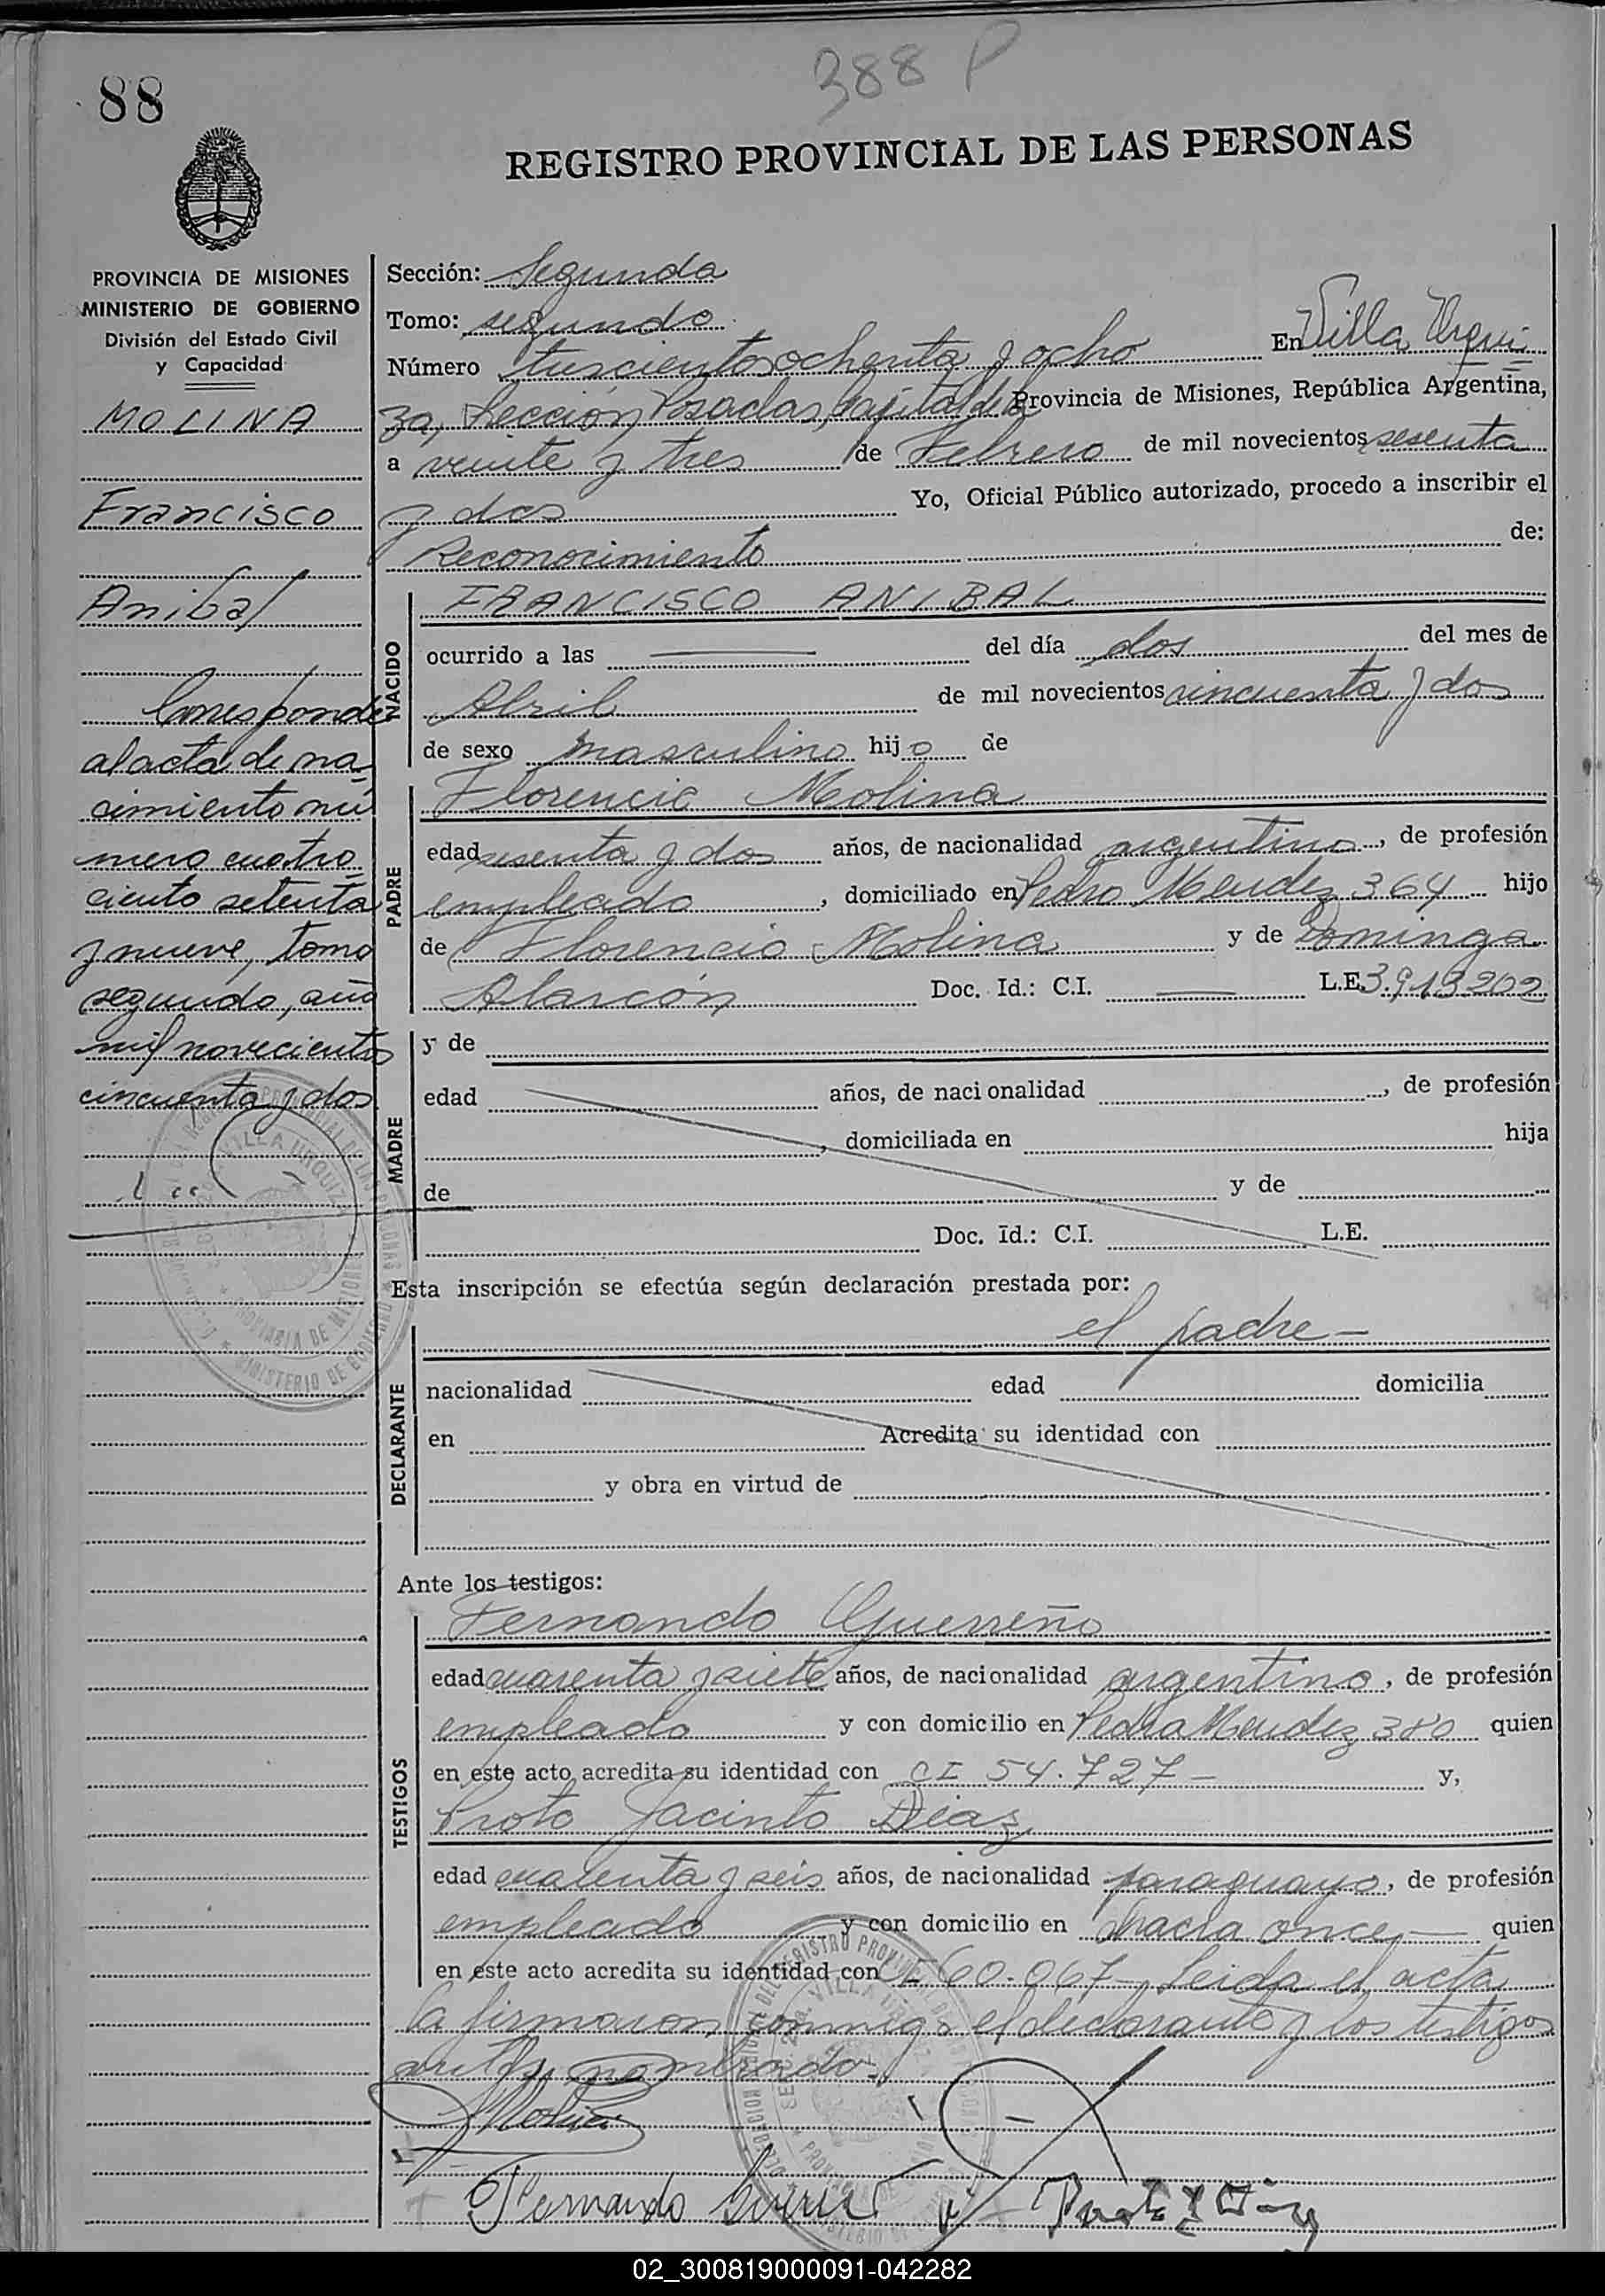 388 P
88
REGISTRO PROVINCIAL DE LAS PERSONAS
PROVINCIA DE MISIONES
MINISTERIO DE GOBIERNO
División del Estado Civil
y Capacidad
MOLINA
Francisco
Anibal
Corresponde
al acta de na-
cimiento nú
mero cuatro
ciento setenta
y nueve, tomo
segundo, año
mil novecientos
cincuenta y dos
Sección: Segunda
Tomo: segundo
Número trescientos ochenta y ocho En Villa Urqui
za, Sección Posadas, Capital de la Provincia de Misiones, República Argentina,
a veinte y tres de Febrero de mil novecientos sesenta
y dos Yo, Oficial Público autorizado, procedo a inscribir el
Reconocimiento de:
NACIDO
FRANCISCO ANIBAL
ocurrido a las — del día dos del mes de
Abril de mil novecientos cincuenta y dos
de sexo masculino hijo de
PADRE
Florencio Molina
edad sesenta y dos años, de nacionalidad argentino, de profesión
empleado, domiciliado en Pedro Mendez 364 hijo
de Florencio Molina y de Dominga
Alarcón Doc. Id.: C.I. — L.E. 3.913202
MADRE
y de
edad años, de nacionalidad , de profesión
, domiciliada en hija
de y de
Doc. Id.: C.I. L.E.
Esta inscripción se efectúa según declaración prestada por:
el padre —
DECLARANTE
nacionalidad edad domicilia
en Acredita su identidad con
y obra en virtud de
Ante los testigos:
TESTIGOS
Fernando Guerreño
edad cuarenta y siete años, de nacionalidad argentino, de profesión
empleado y con domicilio en Pedro Mendez 380 quien
en este acto acredita su identidad con CI 54.727 — y,
Proto Jacinto Diaz
edad cuarenta y seis años, de nacionalidad paraguayo, de profesión
empleado y con domicilio en chacra once, — quien
en este acto acredita su identidad con 60.067 — Leida el acta
la firmaron conmigo el declarante y los testigos
antes nombrado.
Molina
Fernando
02_300819000091-042282